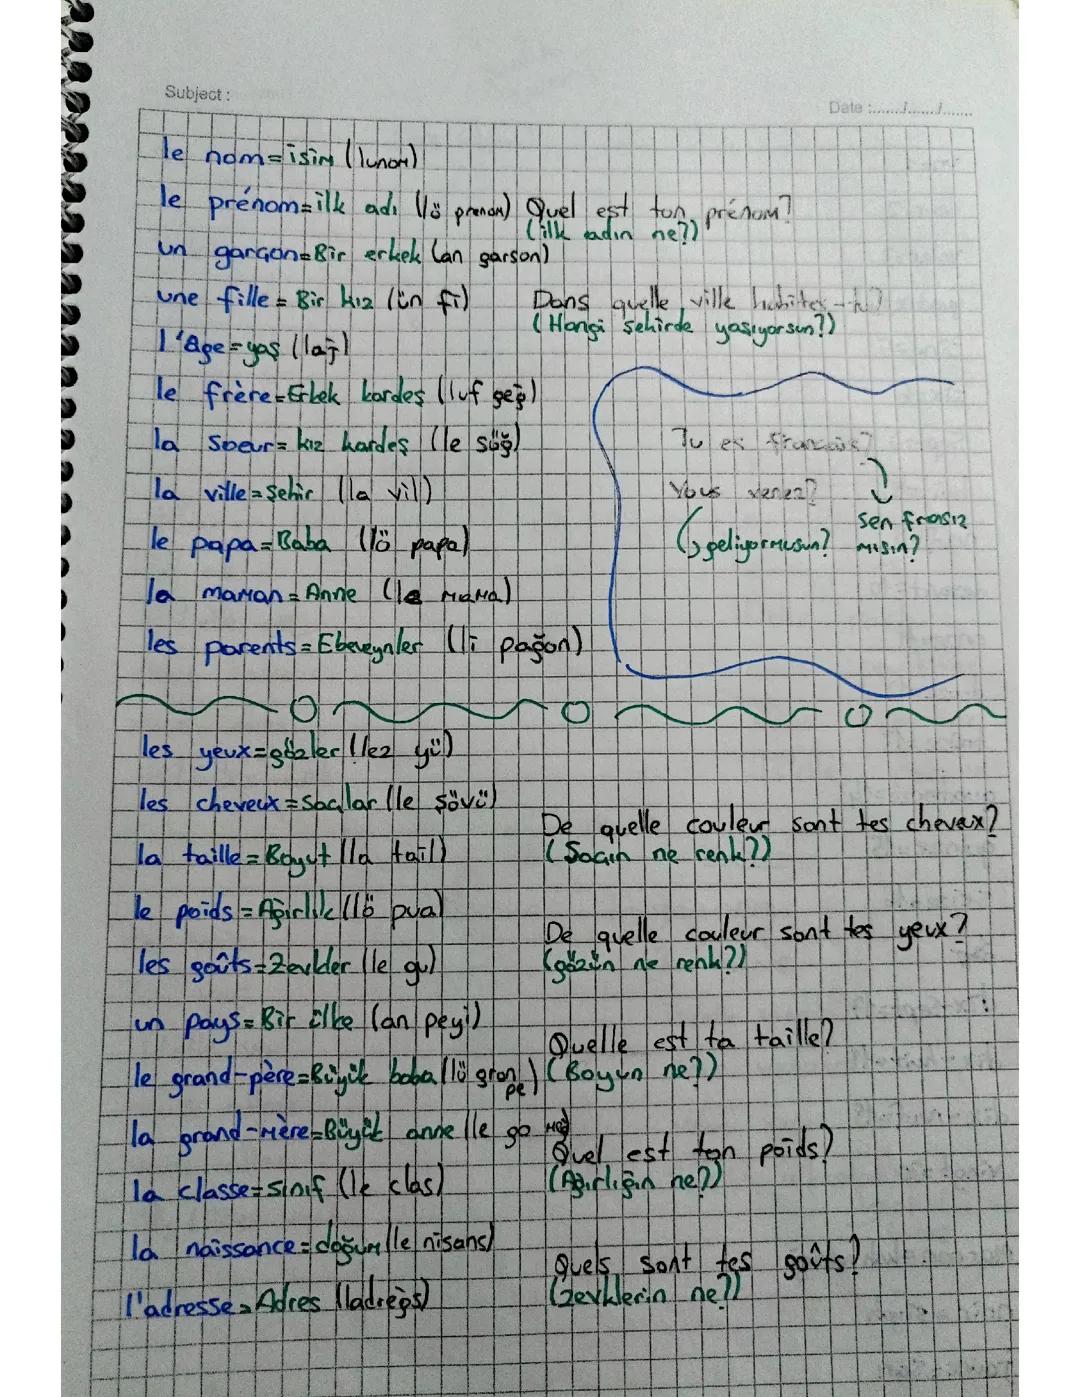 Subject :
Date :......./......./.......
le nom = isim (lunom)
le prénom = ilk adı (lö prenom) Quel est ton prénom?
(ilk adın ne?)
un garçon = Bir erkek (an garson)
une fille = Bir kız (ün fi) Dans quelle ville habites-tu?
(Hangi şehirde yaşıyorsun?)
l'âge = yaş (laj)
le frère = Erkek kardeş
la soeur = kız kardeş (le söğ) Tu es français?
la ville = şehir (la vil) Vous venez?
Sen frasız
le papa = Baba (lö papa) geliyormusun? misin?
la maman = Anne (le mama)
les parents = Ebeveynler (li pağon)
les yeux = gözler (lez yü)
les cheveux = Saçlar (le şövü)
De quelle couleur sont tes chevex?
la taille = Boyut (la tail) (Saçın ne renk?)
le poids = Ağırlık (lö pua)
De quelle couleur sont tes yeux?
les goûts = Zevkler (le gu) (gözün ne renk?)
un pays = Bir ülke (an peyi)
Quelle est ta taille?
le grand-père = Büyük baba (lö gron pe) (Boyun ne?)
la grand-mère = Büyük anne (le go
Quel est ton poids?
la classe = sınıf (le clas) (Ağırlığın ne?)
la naissance = doğum (le nisans)
Quels sont tes goûts?
l'adresse = Adres (ladreğs) (zevklerin ne?)